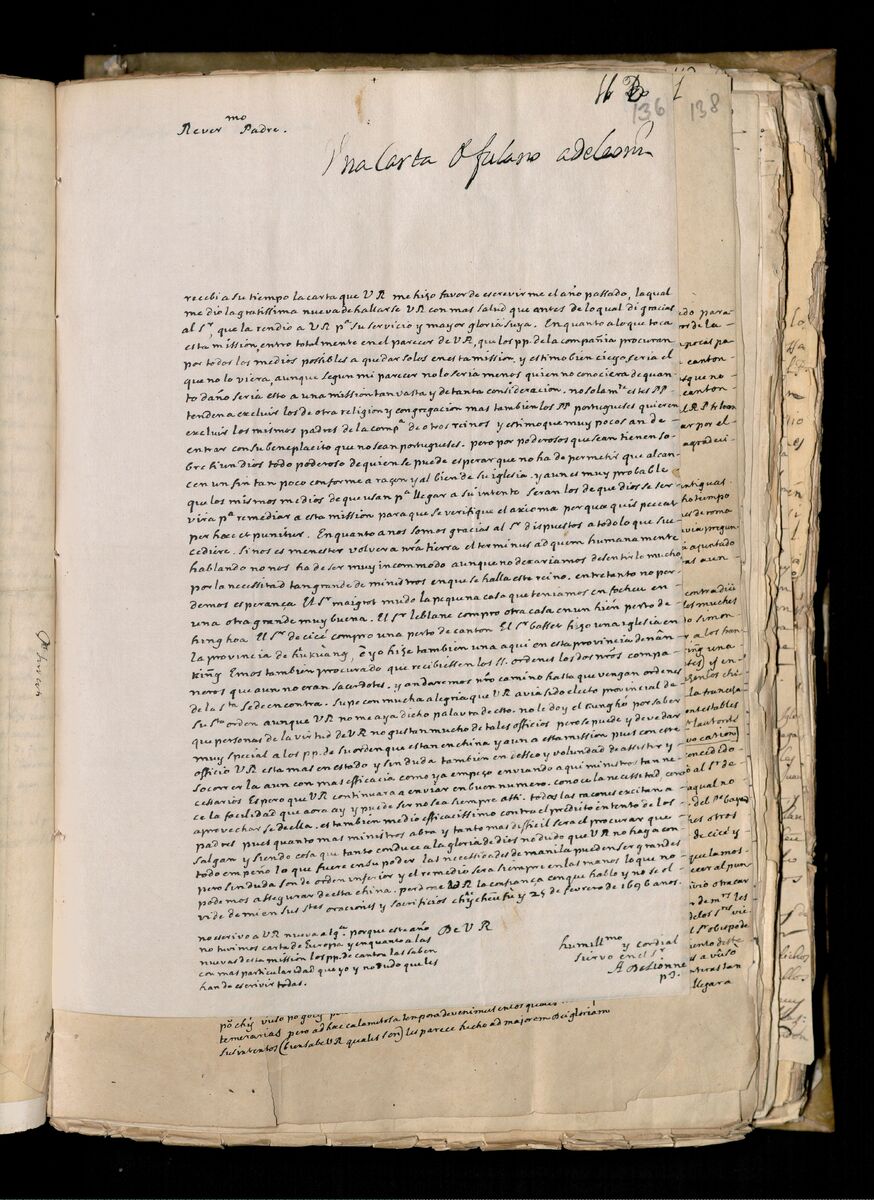 136 138
Rever^mo Padre.
Una Carta
recebi a su tiempo la carta que V R me hizo favor de escrevirme el año passado, la qual
me dio la gratissima nueva de hallarse V R con mas salud que antes de lo qual di gracias
al S^r, que la rendio a V R p^a su servicio y mayor gloria suya. En quanto a lo que toca
esta mission, entro totalmente en el parecer de V R, que los pp. de la compañia procuran
por todos los medios possibles a quedar solos en esta mission, y estimo bien ciego seria el
que no lo viera, aunque segun mi parecer no lo seria menos quien no conociera de quan-
to daño seria esto a una mission tan vasta y de tanta consideracion. no solam^te estes PP
tenden a excluir los de otra religion y congregacion mas tambien los PP portugueses quieren
excluir los mismos padres de la comp^a de otros reinos y estimo que muy pocos an de
entrar con su beneplacito que no sean portugueses. pero por poderosos que sean tienen so-
bre si un dios todo poderoso de quien se puede esperar que no ha de permetir que alcan-
cen un fin tan poco conforme a raçon y al bien de su iglesia. y aun es muy probable
que los mismos medios de que usan p^a llegar a su intento seran los de que dios se ser-
vira p^a remediar a esta mission para que se verifique el axioma per qua quis peccat
per hæc et punitur. En quanto a nos somos gracias al S^r dispuestos a todo lo que suc-
cediere. Si nos es menester volver a nra tierra el terminus ad quem humanamente
hablando no nos ha de ser muy incommodo aunque no dexariamos de sentirle mucho
por la necessitad tan grande de ministros en que se halla este reino. entretanto no per-
demos esperança. El S^r maigrot mudo la pequna casa que teniamos en focheu en
una otra grande muy buena. El S^r leblanc compro otra casa en un hien perto de
hing hoa. El S^r de cicé compro una perto de canton. El S^r basset hizo una iglesia en
la provincia de hu kuang, è yo hize tambien una aqui en esta provincia de nân
king. Emos tambien procurado que recibiessen los SS. ordenes los dos nros compa-
neros que aun no eran sacerdotes. y andaremos nro camino hasta que vengan ordenes
de la s^ta sede en contra. Supe con mucha alegria que V R avia sido electo provincial de
su s^to orden aunque V R no me aya dicho palavra de esto. no le doy el por saber
que personas de la virtud de V R no gustan mucho de tales officios pero se puede y deve dar
muy special a los pp. de su orden que estan en china y aun a esta mission pues con este
officio V R esta mas en estado y sin duda tambien en desseo y voluntad de assistir y
socorrer la aun con mas efficacia como ya empeço enviando aqui ministros tan ne-
cessarios. Espero que V R continuara a enviar en buen numero. conoce la necessitad, cono-
ce la facilidad que aora ay y puede ser no sea siempre assi. todas las racones excitan a
aprovechar se de ella. es tambien medio efficacissimo contra el predito entento de los
padres pues quanto mas ministros abra y tanto mas difficil sera el procurar que
salgan y siendo cosa que tanto conduce a la gloria de dios no dudo que V R no haya con
todo empeño lo que fuere en su poder las necessitades de manila pueden ser grandes
pero sin duda son de orden inferior y el remedio sera siempre en las manos lo que no
podemos assegurar de esta china. perdone V R la confiança con que hablo y no se ol-
vide de mi en sus stes oraciones y sacrificios y 25 de febrero de 1696 anos.
no escrivo a V R nueva alg^a. porque este año
no tuvimos carta de Europa y en quanto a las
nuevas de esta mission los pp. de canton las saben
con mas particularidad que yo y no dudo que les
han de escrivir todas.
De V R
humill^mo y cordial
siervo en el S^r
A De Lionne
temerarias pero ad hæc calamitosa tempora devenimus en los quales
sus intentos (bien sabe V R quales son) les parece hecho ad majorem Dei gloriam